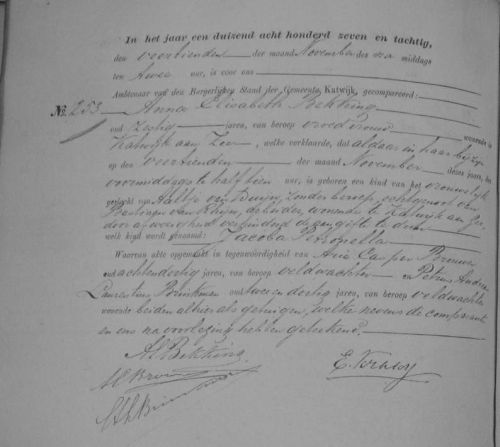 In het jaar een duizend acht honderd zeven en tachtig,
den veertienden der maand November des na middags
ten twee ure, is voor ons
Ambtenaar van den Burgerlijken Stand der Gemeente Katwijk, gecompareerd:
No. 253 Anna Elisabeth Bekking
oud zestig jaren, van beroep vroedvrouw wonende te
Katwijk aan Zee, welke verklaarde, dat aldaar in haar bijzijn
op den veertienden der maand November dezes jaars, des
voormiddags te half tien ure, is geboren een kind van het vrouwelijk
geslacht van Aaltje van Duijn, zonder beroep, echtgenoot van
van Rhijn, wonende te Katwijk aan Zee,
door verhinderd de aangifte te doen
welk kind wordt genaamd: Jacoba Petronella
Waarvan akte opgemaakt in tegenwoordigheid van Arie Casper Brouwer
oud achtendertig jaren, van beroep veldwachter en Petrus Andreas
Laurentius Brinkman oud twee en dertig jaren, van beroep veldwachter
wonende beiden alhier als getuigen, welke nevens de comparante
en ons na voorlezing hebben geteekend.
AE Bekking